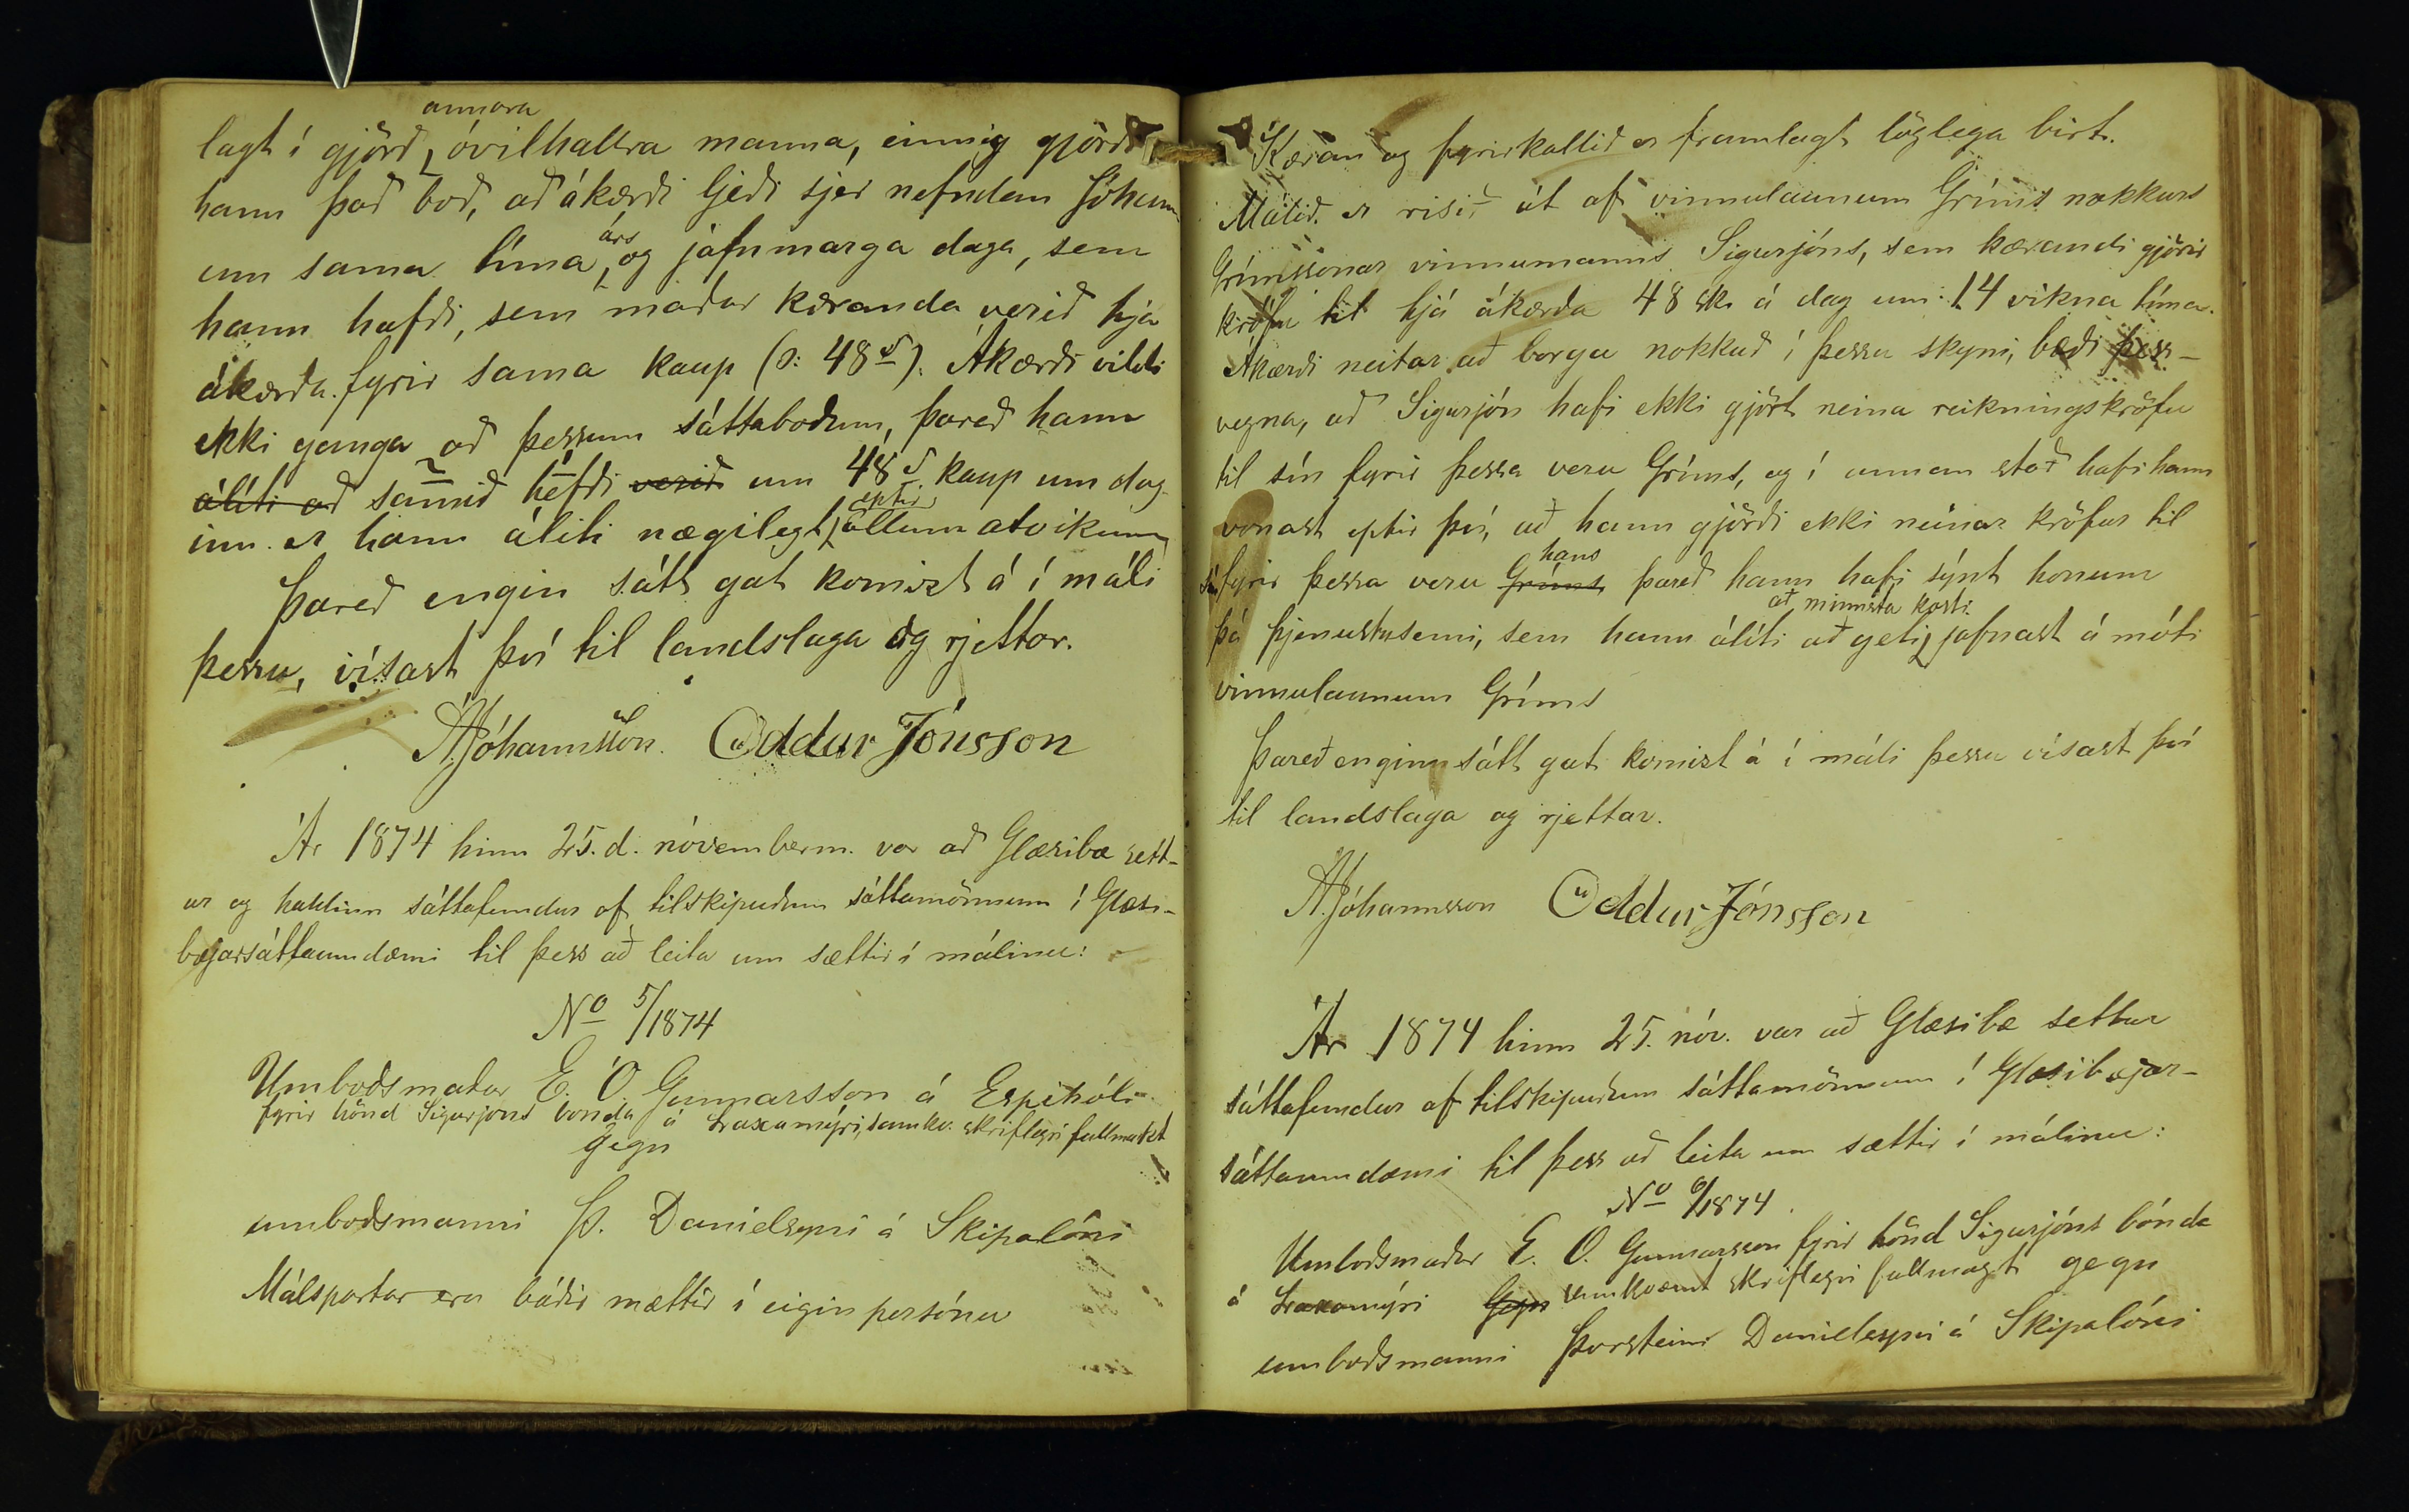 annara
lagt í gjörð, óvilhallra manna, einnig gjörði
hann það boð, að ákærði ljeði sjer nefndan Jóhann
um sama tíma árs, og jafnmarga daga, sem
hann hafði, sem maður kæranda verið hjá
ákærða fyrir sama kaup (ɔ: 48 s). Ákærði vildi
ekki ganga að þessum sáttaboðum, þareð hann
álíti að samið hefði verið um 48 s. kaup um dag-
inn er hann áliti nægilegt eptir öllum atvikum
Þareð engin sátt gat komizt á í máli
þessu, vísast því til landslaga og rjettar.
Á. Jóhannsson. Oddur Jónsson
Ár 1874 hinn 25. d. nóvemberm. var að Glæsibæ sett-
ur og haldinn sáttafundur af tilskipuðum sáttamönnum í Glæsi-
bæjarsáttaumdæmi til þess að leita um sættir í málinu:
No 5/1874
Umboðsmaður E. Ó. Gunnarsson á Espihóli
fyrir hönd Sigurjóns bónda á Laxamýri, samkv. skriflegri fullmakt
gegn
umboðsmanni Þ. Daníelssyni á Skipalóni
Málspartar eru báðir mættir í eigin persónu
Kæran og fyrirkallið er framlagt löglega birt.
Málið er risið út af vinnulaunum Gríms nokkurs
Grímssonar vinnumanns Sigurjóns, sem kærandi gjörir
kröfu til hjá ákærða 48 sk. á dag um 14 vikna tíma.
Ákærði neitar að borga nokkuð í þessu skyni, bæði þess-
vegna, að Sigurjón hafi ekki gjört neina reikningskröfu
til sín fyrir þessa veru Gríms, og í annan stað hafi hann
vonast eptir því, að hann gjörði ekki neinar kröfur til
sín fyrir þessa veru Gríms hans þareð hann hafi sýnt honum
að minnsta kosti
þá þjenustusemi, sem hann álíti að geti jafnast á móti
vinnulaunum Gríms
Þareð enginn sátt gat komizt á í máli þessu vísast því
til landslaga og rjettar.
Á. Jóhannsson Oddur Jónsson
Ár 1874 hinn 25. nóv. var að Glæsibæ settur
sáttafundur af tilskipuðum sáttamönnum í Glæsibæjar-
sáttaumdæmi til þess að leita um sættir í málinu:
No 6/1874
Umboðsmaður E. Ó. Gunnarsson fyrir hönd Sigurjóns bónda
á Laxamýri Gegn samkvæmt skriflegri fullmagt gegn
umboðsmanni Þorsteini Daníelssyni á Skipalóni